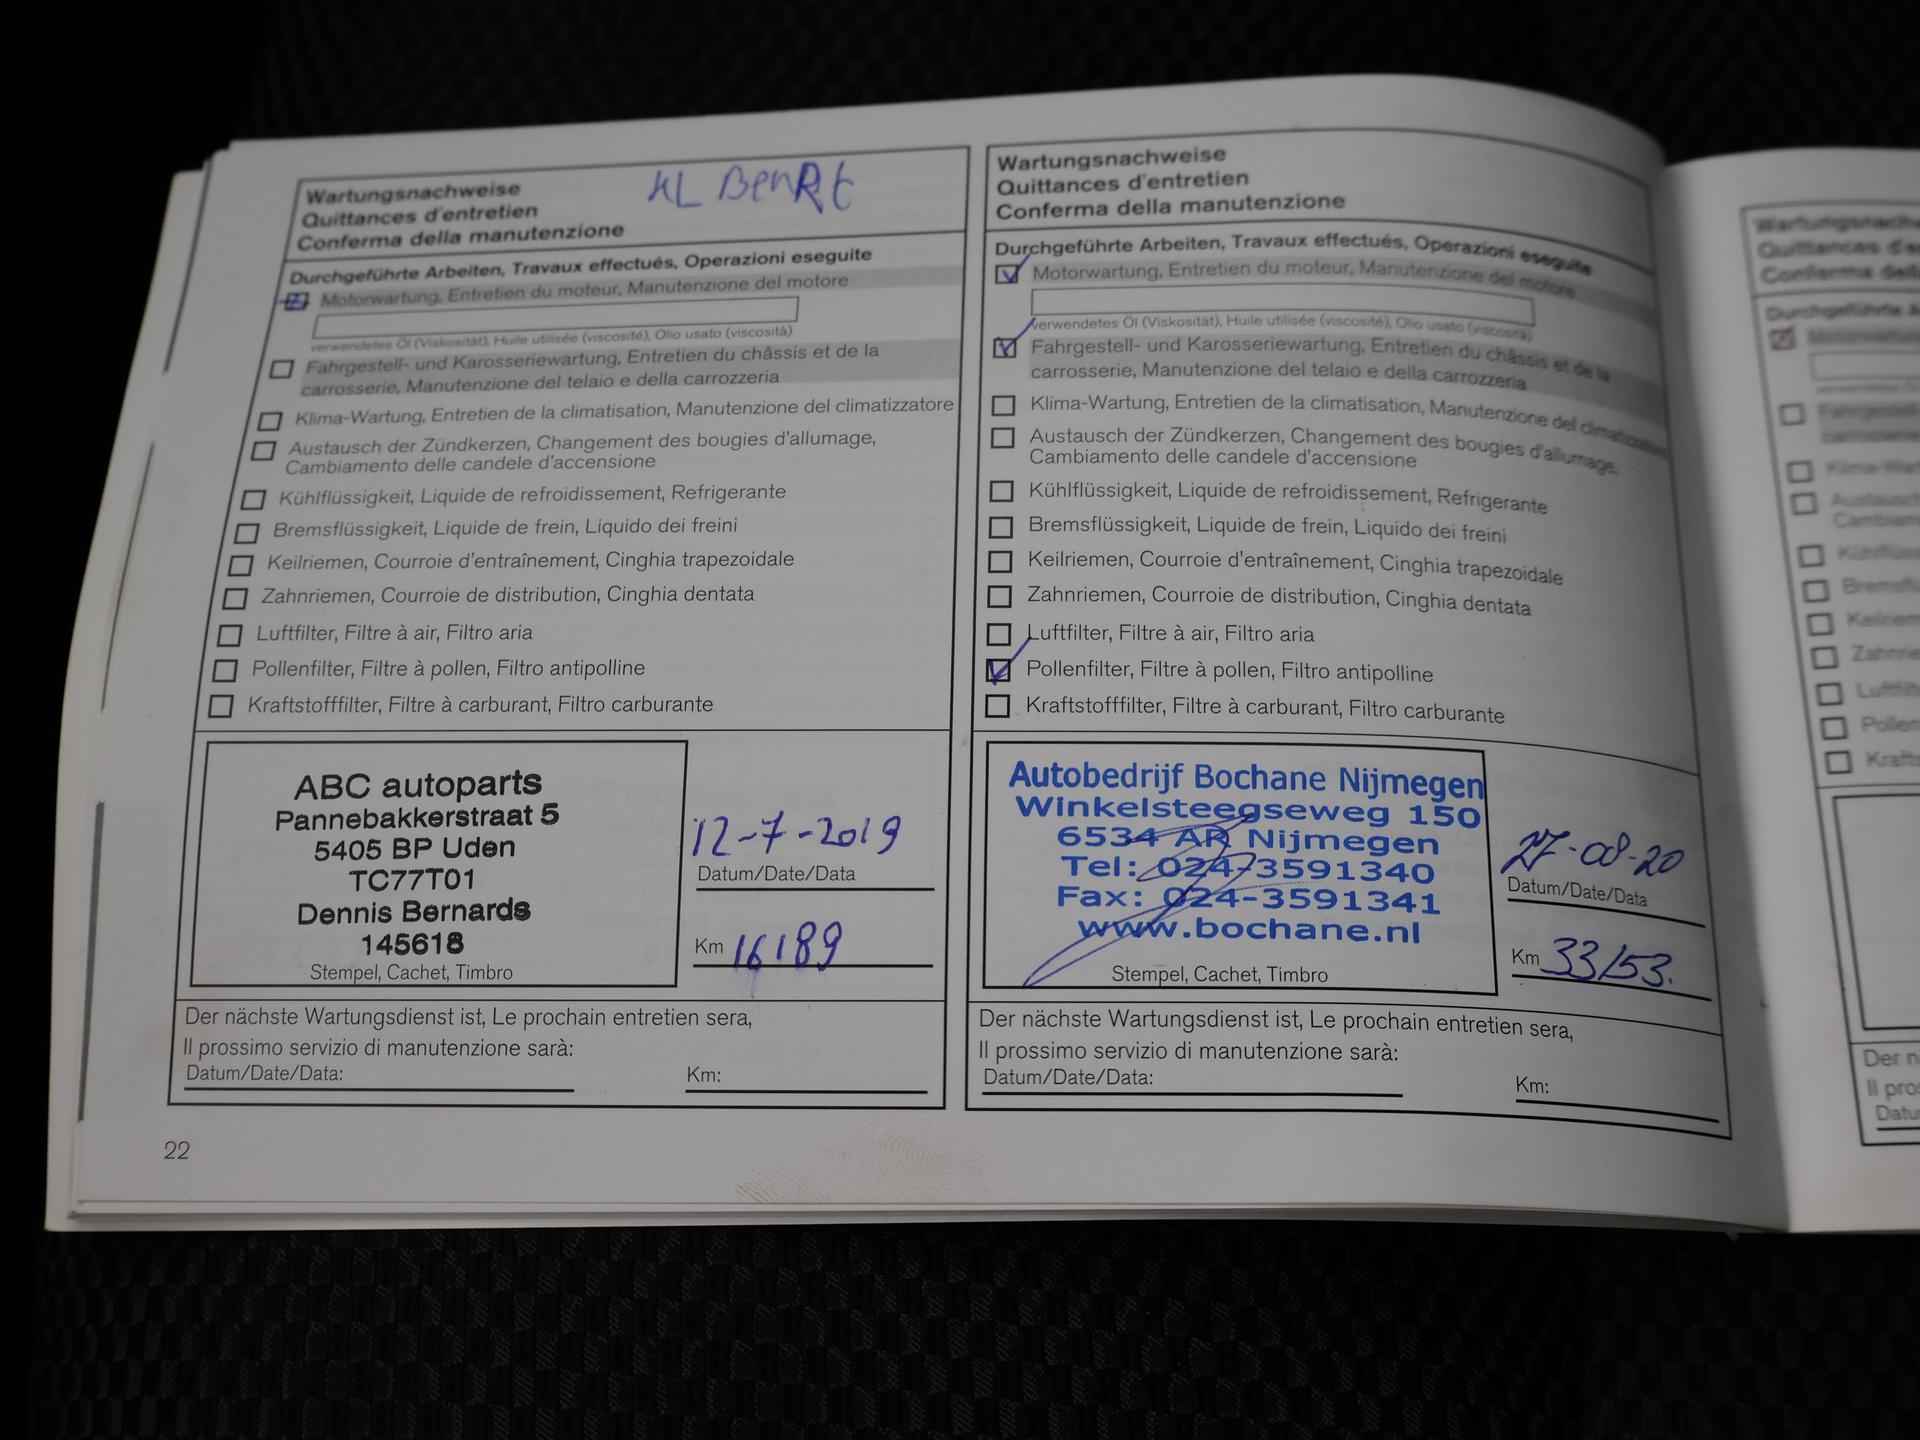 Wartungsnachweise
Quittances d'entretien
Conferma della manutenzione
KL BenRt
Durchgeführte Arbeiten, Travaux effectués, Operazioni eseguite
Motorwartung, Entretien du moteur, Manutenzione del motore
verwendetes Öl (Viskosität), Huile utilisée (viscosité), Olio usato (viscosità)
Fahrgestell- und Karosseriewartung, Entretien du châssis et de la
carrosserie, Manutenzione del telaio e della carrozzeria
Klima-Wartung, Entretien de la climatisation, Manutenzione del climatizzatore
Austausch der Zündkerzen, Changement des bougies d'allumage,
Cambiamento delle candele d'accensione
Kühlflüssigkeit, Liquide de refroidissement, Refrigerante
Bremsflüssigkeit, Liquide de frein, Liquido dei freini
Keilriemen, Courroie d'entraînement, Cinghia trapezoidale
Zahnriemen, Courroie de distribution, Cinghia dentata
Luftfilter, Filtre à air, Filtro aria
Pollenfilter, Filtre à pollen, Filtro antipolline
Kraftstofffilter, Filtre à carburant, Filtro carburante
ABC autoparts
Pannebakkerstraat 5
5405 BP Uden
TC77T01
Dennis Bernards
145618
Stempel, Cachet, Timbro
12-7-2019
Datum/Date/Data
Km 16189
Der nächste Wartungsdienst ist, Le prochain entretien sera,
Il prossimo servizio di manutenzione sarà:
Datum/Date/Data:
Km:
22
Wartungsnachweise
Quittances d'entretien
Conferma della manutenzione
Durchgeführte Arbeiten, Travaux effectués, Operazioni eseguite
Motorwartung, Entretien du moteur, Manutenzione del motore
verwendetes Öl (Viskosität), Huile utilisée (viscosité), Olio usato (viscosità)
Fahrgestell- und Karosseriewartung, Entretien du châssis et de la
carrosserie, Manutenzione del telaio e della carrozzeria
Klima-Wartung, Entretien de la climatisation, Manutenzione del climatizzatore
Austausch der Zündkerzen, Changement des bougies d'allumage,
Cambiamento delle candele d'accensione
Kühlflüssigkeit, Liquide de refroidissement, Refrigerante
Bremsflüssigkeit, Liquide de frein, Liquido dei freini
Keilriemen, Courroie d'entraînement, Cinghia trapezoidale
Zahnriemen, Courroie de distribution, Cinghia dentata
Luftfilter, Filtre à air, Filtro aria
Pollenfilter, Filtre à pollen, Filtro antipolline
Kraftstofffilter, Filtre à carburant, Filtro carburante
Autobedrijf Bochane Nijmegen
Winkelsteegseweg 150
6534 AR Nijmegen
Tel: 024-3591340
Fax: 024-3591341
www.bochane.nl
Stempel, Cachet, Timbro
27-08-20
Datum/Date/Data
Km 33153.
Der nächste Wartungsdienst ist, Le prochain entretien sera,
Il prossimo servizio di manutenzione sarà:
Datum/Date/Data:
Km: